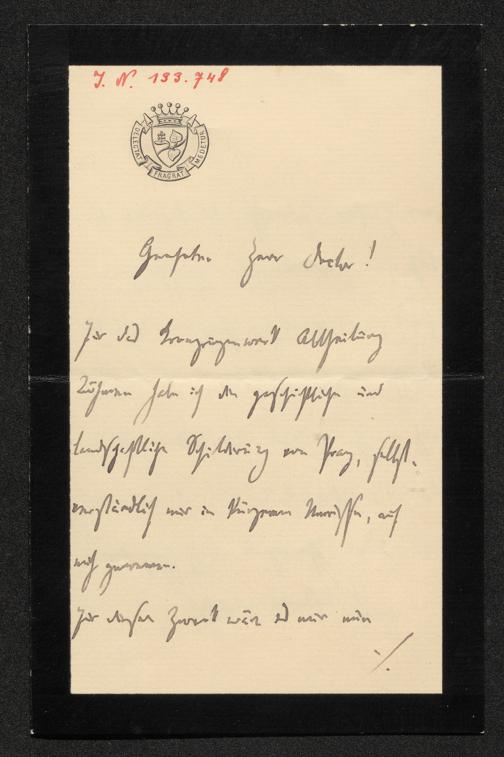 J. N. 133.748
DELECTAT FRAGRAT MEDETUR
Geehrter Herr Doctor!
Für das Kronprinzenwerk Abtheilung
Böhmen habe ich die geschichtliche und
landschaftliche Schilderung von Prag, selbst-
verständlich nur in kürzerem Umrisse, auf
mich genommen.
Für diesen Zweck wäre es mir nun
./.